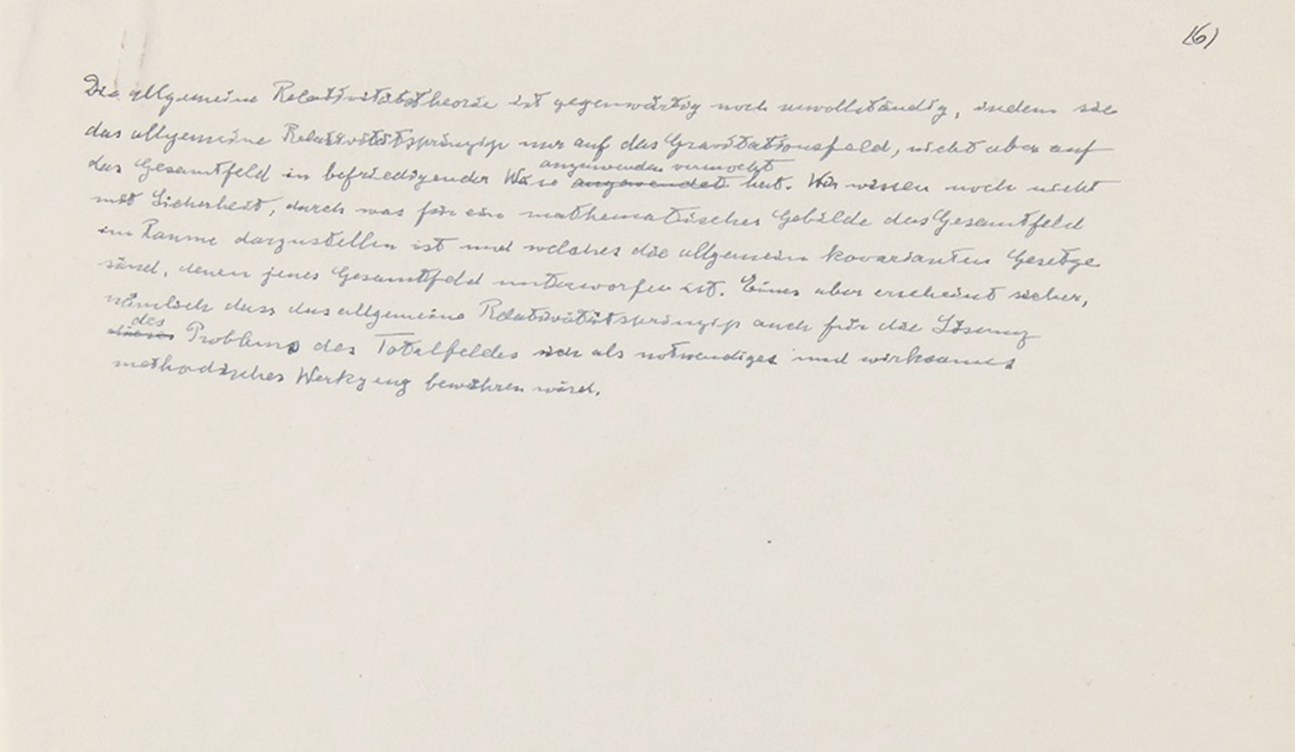 (6)
Die allgemeine Relativitätstheorie ist gegenwärtig noch unvollständig, indem sie
das allgemeine Relativitätsprinzip nur auf das Gravitationsfeld, nicht aber auf
anzuwenden vermocht
das Gesamtfeld in befriedigender Weise angewendet hat. Wir wissen noch nicht
mit Sicherheit, durch was für ein mathematisches Gebilde das Gesamtfeld
im Raume darzustellen ist und welches die allgemein kovarianten Gesetze
sind, denen jenes Gesamtfeld unterworfen ist. Eines aber erscheint sicher,
nämlich dass das allgemeine Relativitätsprinzip auch für die Lösung
des
dieses Problems des Totalfeldes sich als notwendiges und wirksames
methodisches Werkzeug bewähren wird.